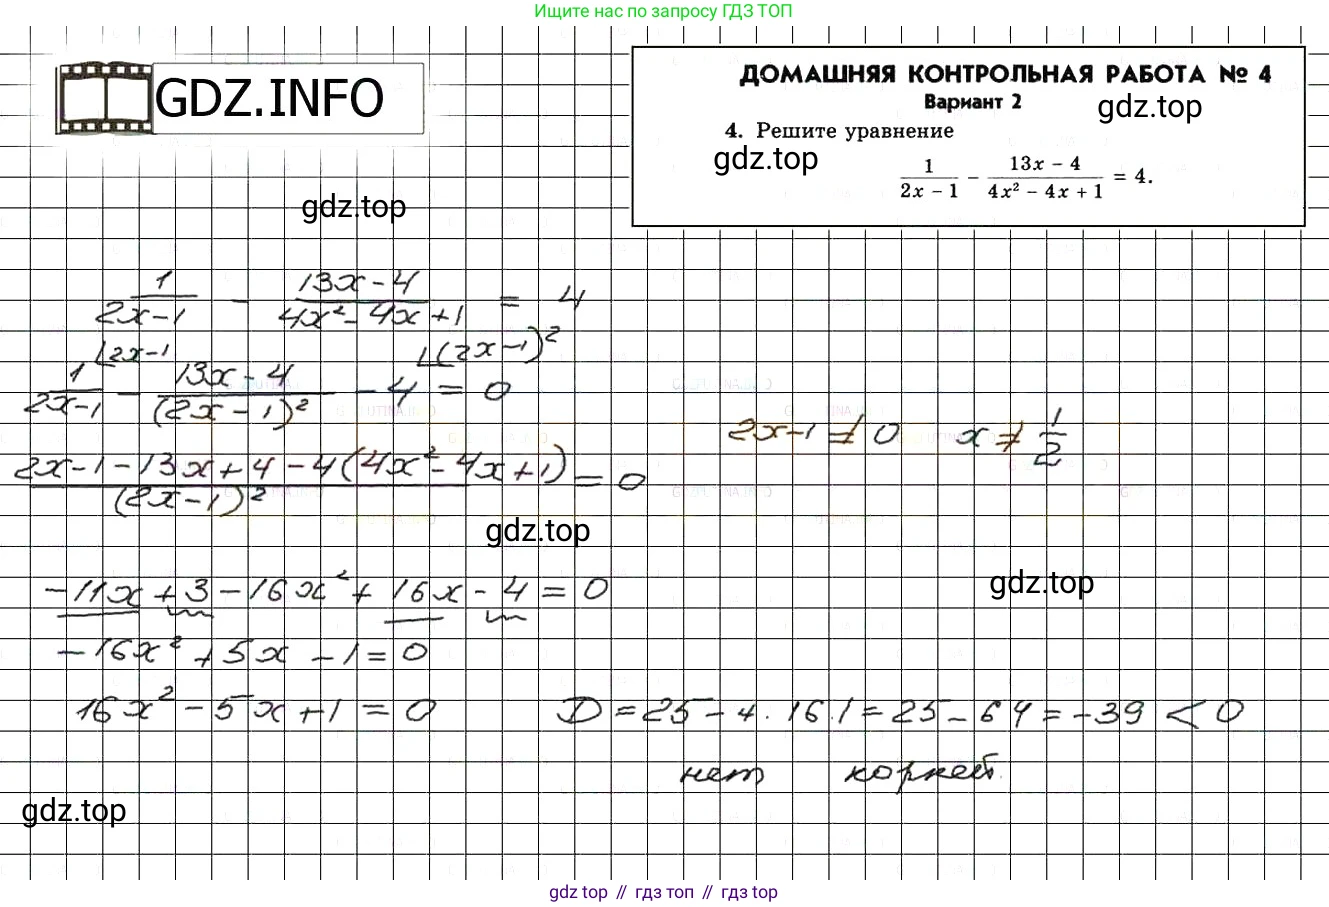 Ищите нас по запросу ГДЗ ТОП
GDZ.INFO
ДОМАШНЯЯ КОНТРОЛЬНАЯ РАБОТА № 4
Вариант 2
gdz.top
4. Решите уравнение
gdz.top
1/(2x − 1) − (13x − 4)/(4x² − 4x + 1) = 4.
gdz.top
1/(2x−1) − (13x−4)/(4x²−4x+1) = 4
⌊2x−1 ⌊(2x−1)²
1/(2x−1) − (13x−4)/(2x−1)² − 4 = 0
2x−1 ≠ 0 x ≠ 1/2
(2x−1−13x+4−4(4x²−4x+1))/(2x−1)² = 0
gdz.top
−11x+3−16x²+16x−4=0
gdz.top
−16x²+5x−1=0
16x²−5x+1=0 D=25−4·16·1=25−64=−39<0
нет корней.
gdz.top
gdz top // гдз топ // gdz top